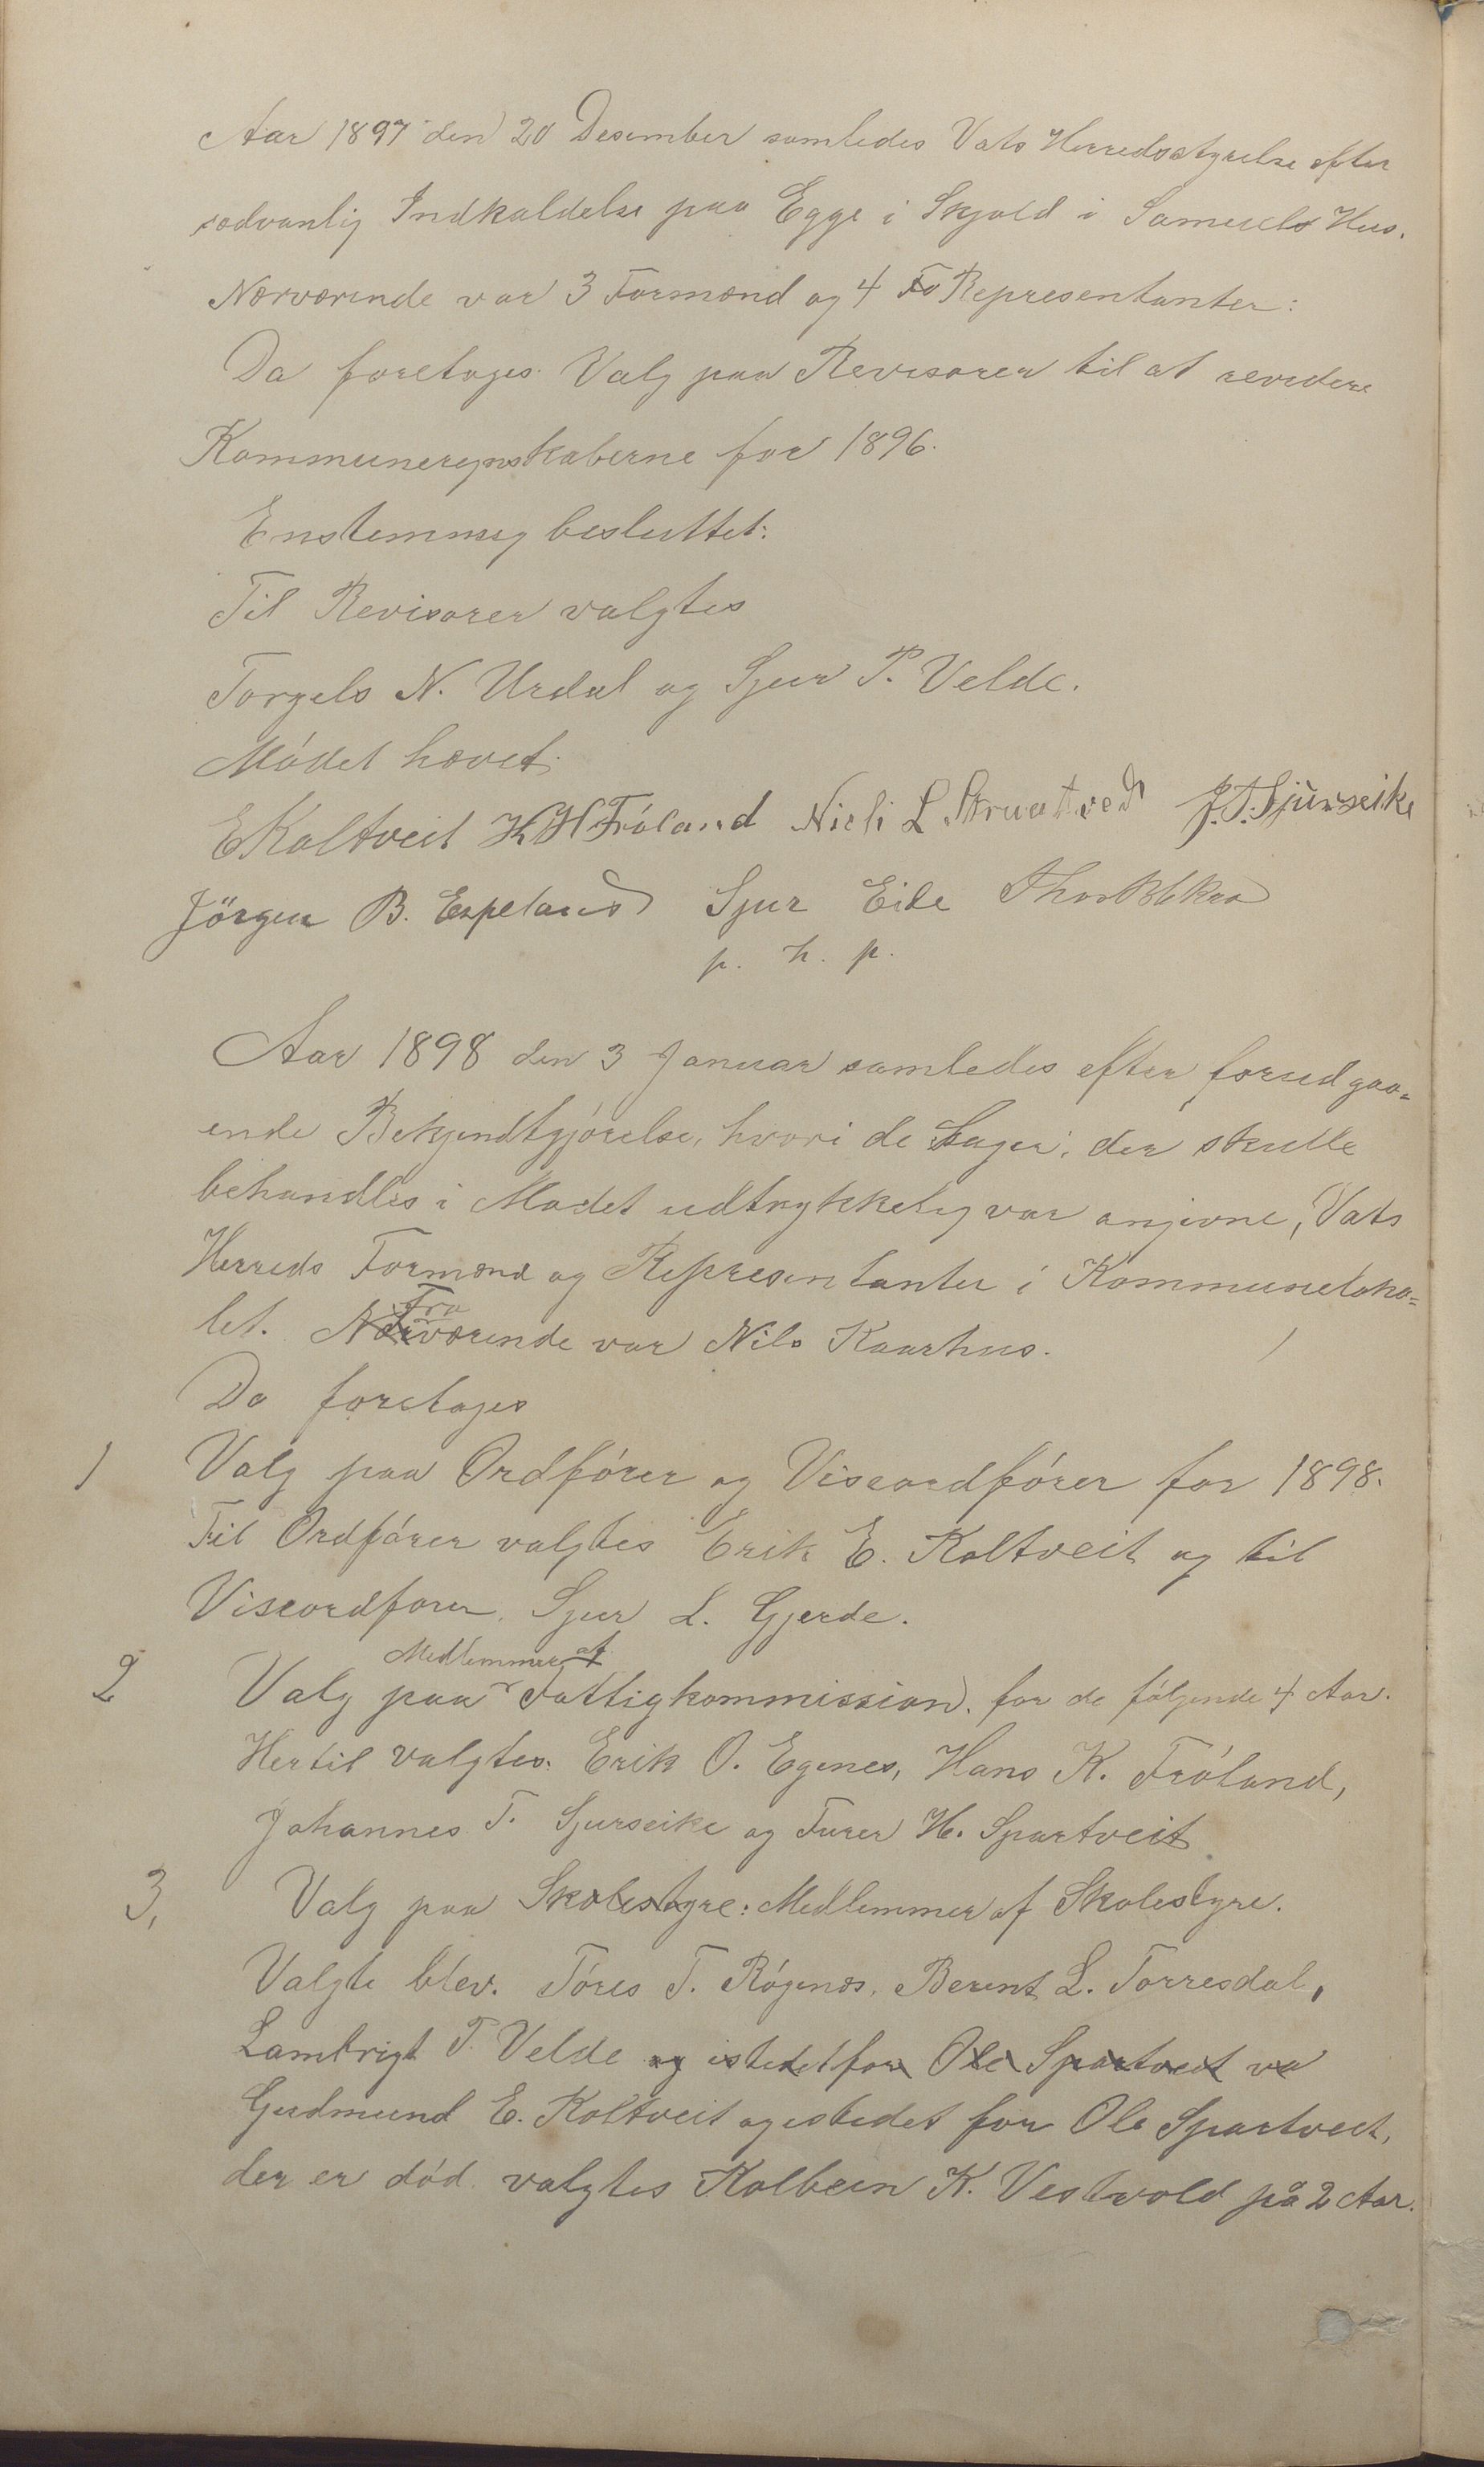 Aar 1897 den 20 Desember samledes Vats Herredsstyrelse efter
sædvanlig Indkaldelse paa Egge i Skjold i Samuels Hus.
Nærværende var 3 Formænd og 4 Fo Representanter:
Da foretoges Valg paa Revisorer til at revidere
Kommuneregnskaberne for 1896.
Enstemmig besluttet:
Til Revisorer valgtes
Torgels N. Urdal og Sjur P. Velde.
Mödet hævet.
E Koltveit K H Fröland Niels L. J. T. Sjurseike
Jörgen B. Espeland Sjur Eide
p. h. p.
Aar 1898 den 3 Januar samledes efter forudgaa=
ende Bekjendtgjörelse, hvori de Sager, der skulle
behandles i Mödet udtrykkelig var angivne, Vats
Herreds Formænd og Representanter i Kommuneloka=
let. Nærværende var Nils Kaarhus.
Fra
Da foretoges
1 Valg paa Ordförer og Viseordförer for 1898.
Til Ordförer valgtes Erik E. Koltveit og til
Viseordförer Sjur L. Gjerde.
Medlemmer af
2 Valg paa Fattigkommission. for de fölgende 4 Aar.
Hertil valgtes: Erik O. Egenes, Hans K. Fröland,
Johannes T. Sjurseike og Turer H. Spartveit
3, Valg paa Skolestyre: Medlemmer af Skolestyre.
Valgte blev. Töres T. Rögenes, Berent L. Torresdal,
Lambrigt T. Velde og istedet for Ole Spartveit va
Gudmund E. Koltveit og istedet for Ole Spartveit,
der er död valgtes Kolbein K. Vestvold på 2 Aar.